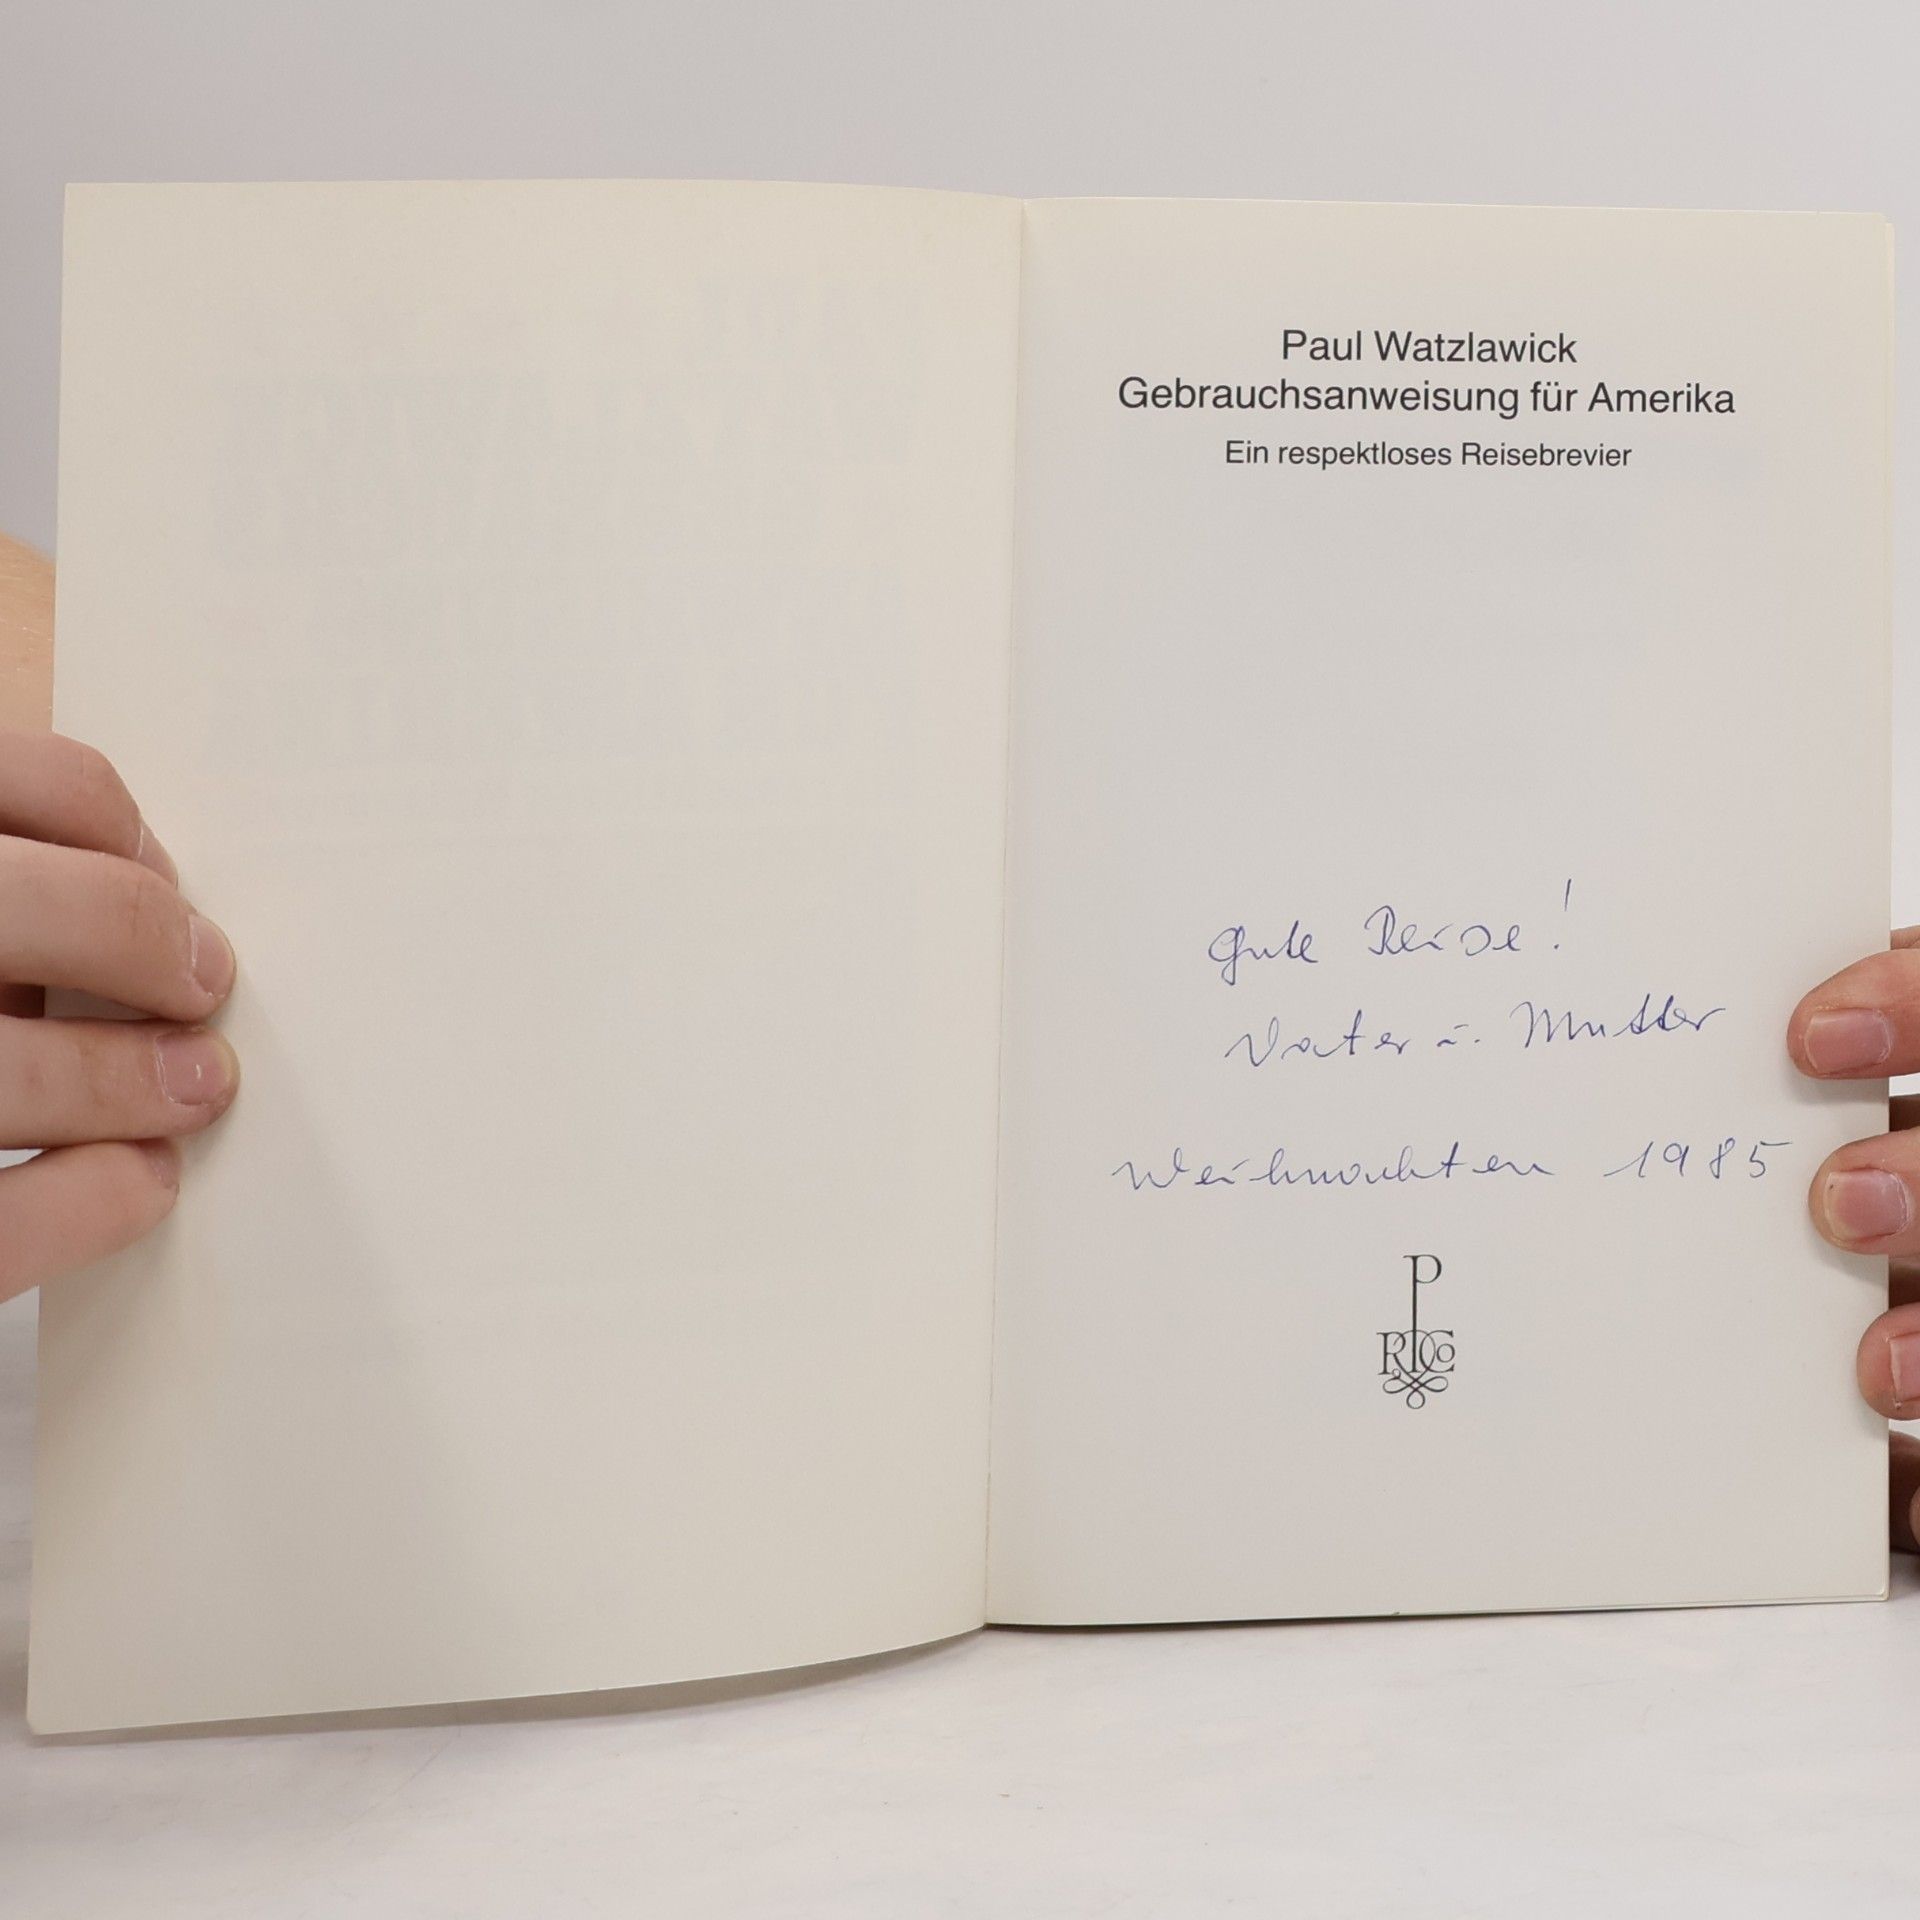 Paul Watzlawick
Gebrauchsanweisung für Amerika
Ein respektloses Reisebrevier
Gute Reise!
Vater u. Mutter
Weihnachten 1985
P
R.P&Co